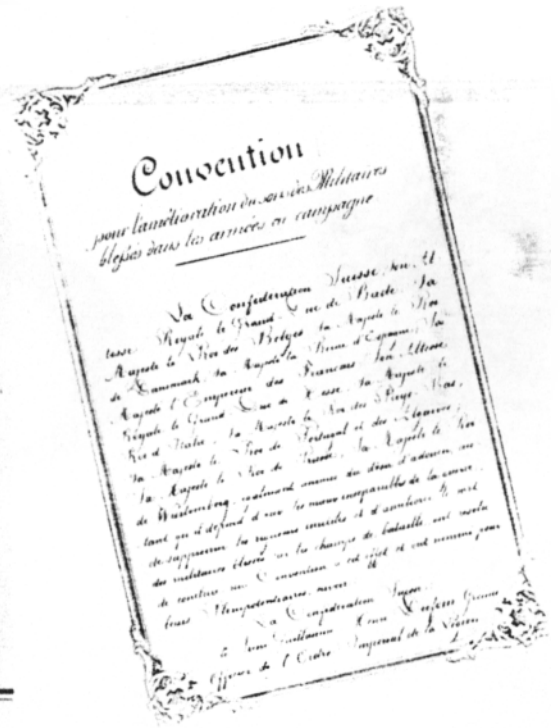 Convention
pour l'amélioration du sort des Militaires
blessés dans les armées en campagne
La Confédération Suisse, Son Al
tesse Royale le Grand Duc de Bade, Sa
Majesté le Roi des Belges, Sa Majesté le Roi
de Danemark, Sa Majesté la Reine d'Espagne, Sa
Majesté l'Empereur des Français, Son Altesse
Royale le Grand Duc de Hesse, Sa Majesté le
Roi d'Italie, Sa Majesté le Roi des Pays-Bas,
Sa Majesté le Roi de Portugal et des Algarves,
Sa Majesté le Roi de Prusse, Sa Majesté le Roi
de Württemberg, également animés du désir d'adoucir, au
tant qu'il dépend d'eux, les maux inséparables de la guerre,
de supprimer les rigueurs inutiles et d'améliorer le sort
des militaires blessés sur les champs de bataille, ont résolu
de conclure une Convention à cet effet et ont nommé pour
leurs Plénipotentiaires, savoir:
La Confédération Suisse:
le Sieur Guillaume Henri Dufour, Grand
Officier de l'Ordre Impérial de la Légion